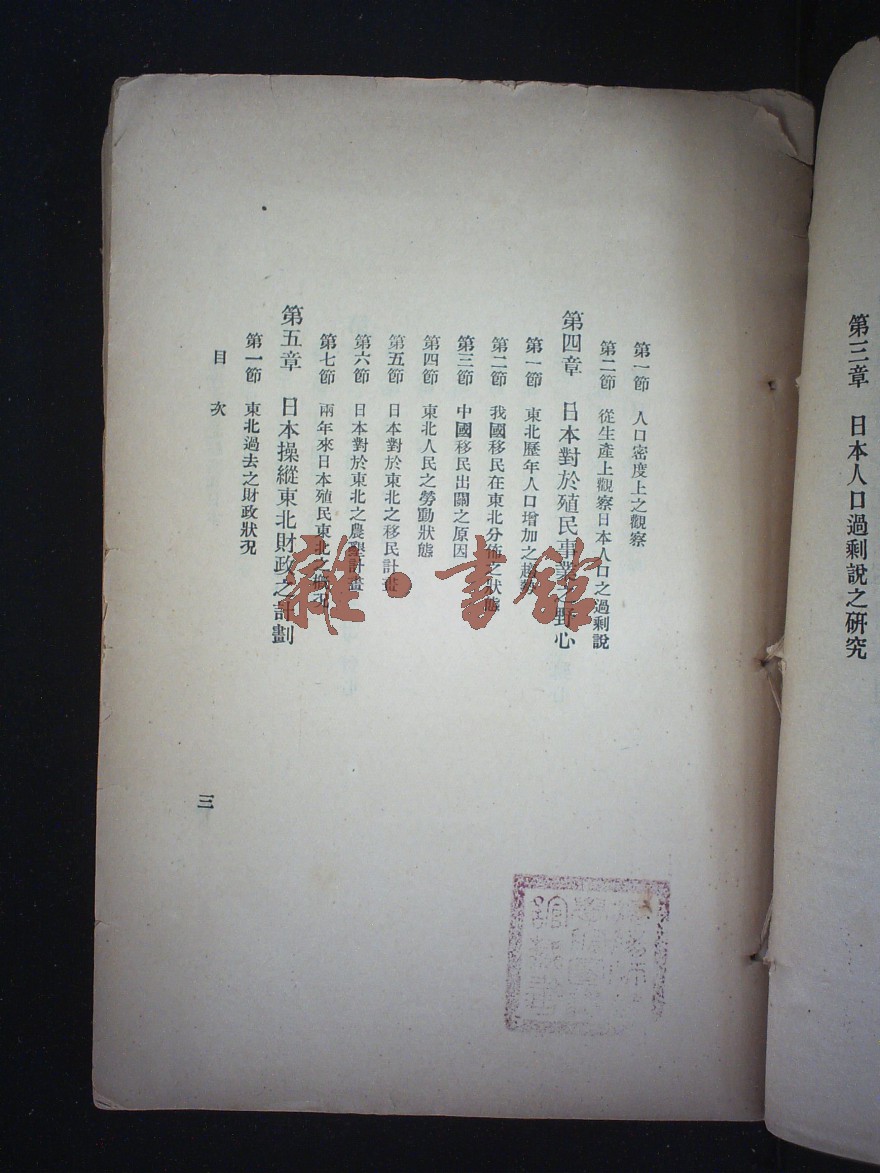 第三章　日本人口過剩說之研究
第一節　人口密度上之觀察
第二節　從生產上觀察日本人口之過剩說
第四章　日本對於殖民事業之野心
第一節　東北歷年人口增加之趨勢
第二節　我國移民在東北分佈之狀態
第三節　中國移民出關之原因
第四節　東北人民之勞動狀態
第五節　日本對於東北之移民計畫
第六節　日本對於東北之農墾計畫
第七節　兩年來日本殖民東北之概況
第五章　日本操縱東北財政之計劃
第一節　東北過去之財政狀況
目次
三
雜·書館